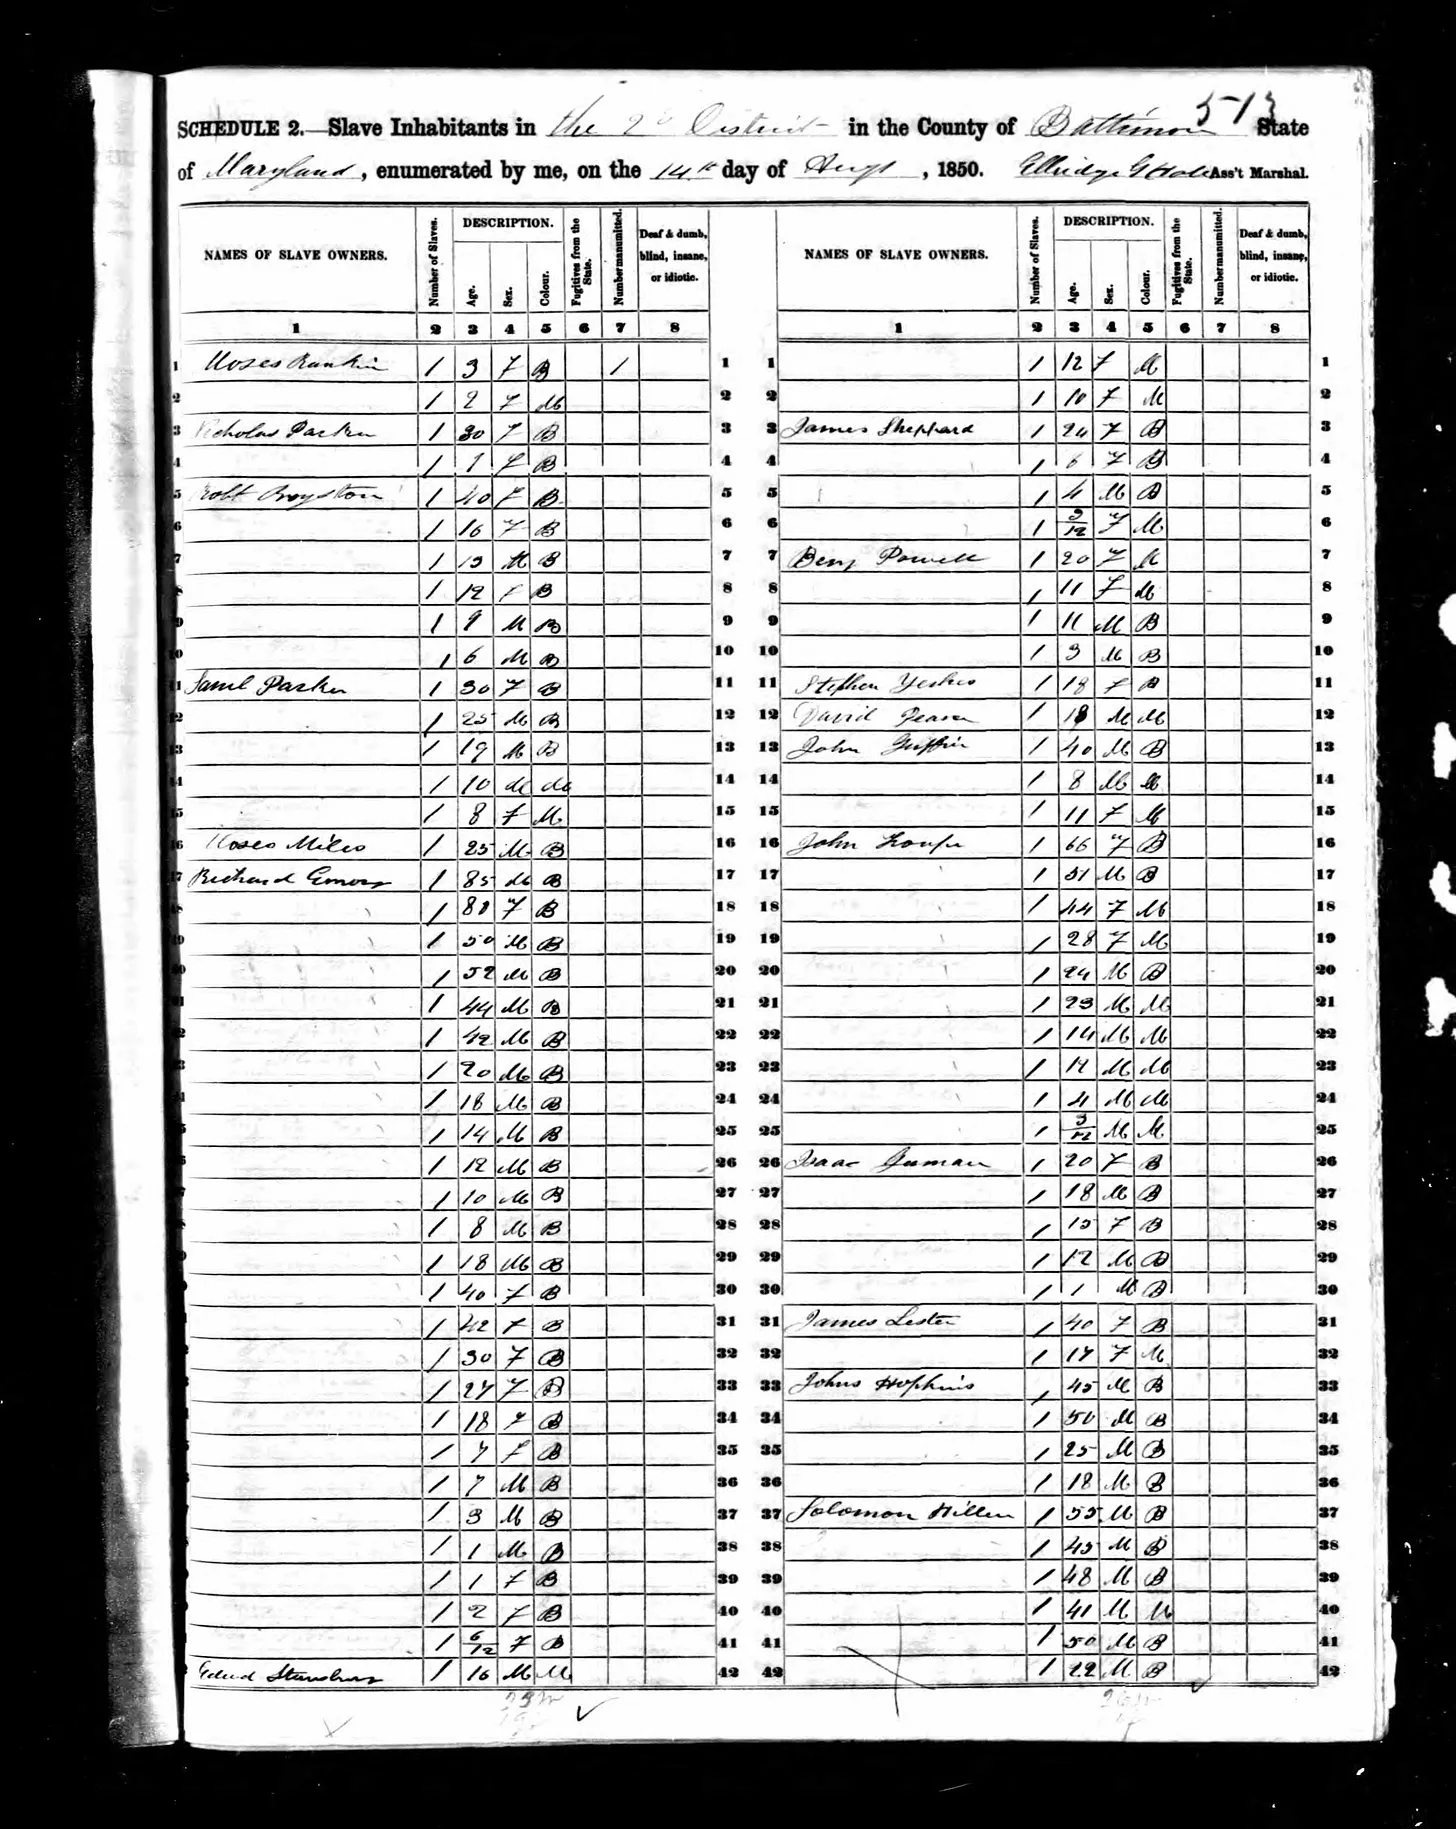 513
SCHEDULE 2.—Slave Inhabitants in the 2d District in the County of Baltimore State
of Maryland, enumerated by me, on the 14th day of Augt, 1850. Elbridge G Ass't Marshal.
NAMES OF SLAVE OWNERS. Number of Slaves. DESCRIPTION. Age. Sex. Colour. Fugitives from the State. Number manumitted. Deaf & dumb, blind, insane, or idiotic.
1 2 3 4 5 6 7 8
1 Moses Rankin 1 3 F B 1 1
2 1 2 F M 2
3 Nicholas Parker 1 30 F B 3
4 1 1 F B 4
5 Robt Royston 1 40 F B 5
6 1 16 F B 6
7 1 13 M B 7
8 1 12 F B 8
9 1 9 M B 9
10 1 6 M B 10
11 Saml Parker 1 30 F B 11
12 1 25 M B 12
13 1 19 M B 13
14 1 10 M M 14
15 1 8 F M 15
16 Moses Miles 1 25 M B 16
17 Richard Emory 1 85 M B 17
1 80 F B 18
1 50 M B 19
1 52 M B 20
1 44 M B 21
1 42 M B 22
1 20 M B 23
1 18 M B 24
1 14 M B 25
1 12 M B 26
1 10 M B 27
1 8 M B 28
1 18 M B 29
1 40 F B 30
1 42 F B 31
1 30 F B 32
1 27 F B 33
1 18 F B 34
1 7 F B 35
1 7 M B 36
1 3 M B 37
1 1 M B 38
1 1 F B 39
1 2 F B 40
1 6/12 F B 41
Edwd Stansbury 1 16 M M 42
NAMES OF SLAVE OWNERS. Number of Slaves. DESCRIPTION. Age. Sex. Colour. Fugitives from the State. Number manumitted. Deaf & dumb, blind, insane, or idiotic.
1 2 3 4 5 6 7 8
1 1 12 F M 1
2 1 10 F M 2
3 James Sheppard 1 24 F B 3
4 1 6 F B 4
5 1 4 M B 5
6 1 3/12 F M 6
7 Benj Powell 1 20 F M 7
8 1 11 F M 8
9 1 11 M B 9
10 1 3 M B 10
11 Stephen 1 18 F B 11
12 David 1 18 M M 12
13 John Griffin 1 40 M B 13
14 1 8 M M 14
15 1 11 F M 15
16 John 1 66 F B 16
17 1 51 M B 17
18 1 44 F M 18
19 1 28 F M 19
20 1 24 M B 20
21 1 23 M M 21
22 1 14 M M 22
23 1 12 M M 23
24 1 4 M M 24
25 1 3/12 M M 25
26 Isaac 1 20 F B 26
27 1 18 M B 27
28 1 15 F B 28
29 1 12 M B 29
30 1 1 M B 30
31 James Lester 1 40 F B 31
32 1 17 F M 32
33 Johns Hopkins 1 45 M B 33
34 1 50 M B 34
35 1 25 M B 35
36 1 18 M B 36
37 Solomon Hillen 1 55 M B 37
38 1 45 M B 38
39 1 48 M B 39
40 1 41 M M 40
41 1 50 M B 41
42 1 22 M B 42